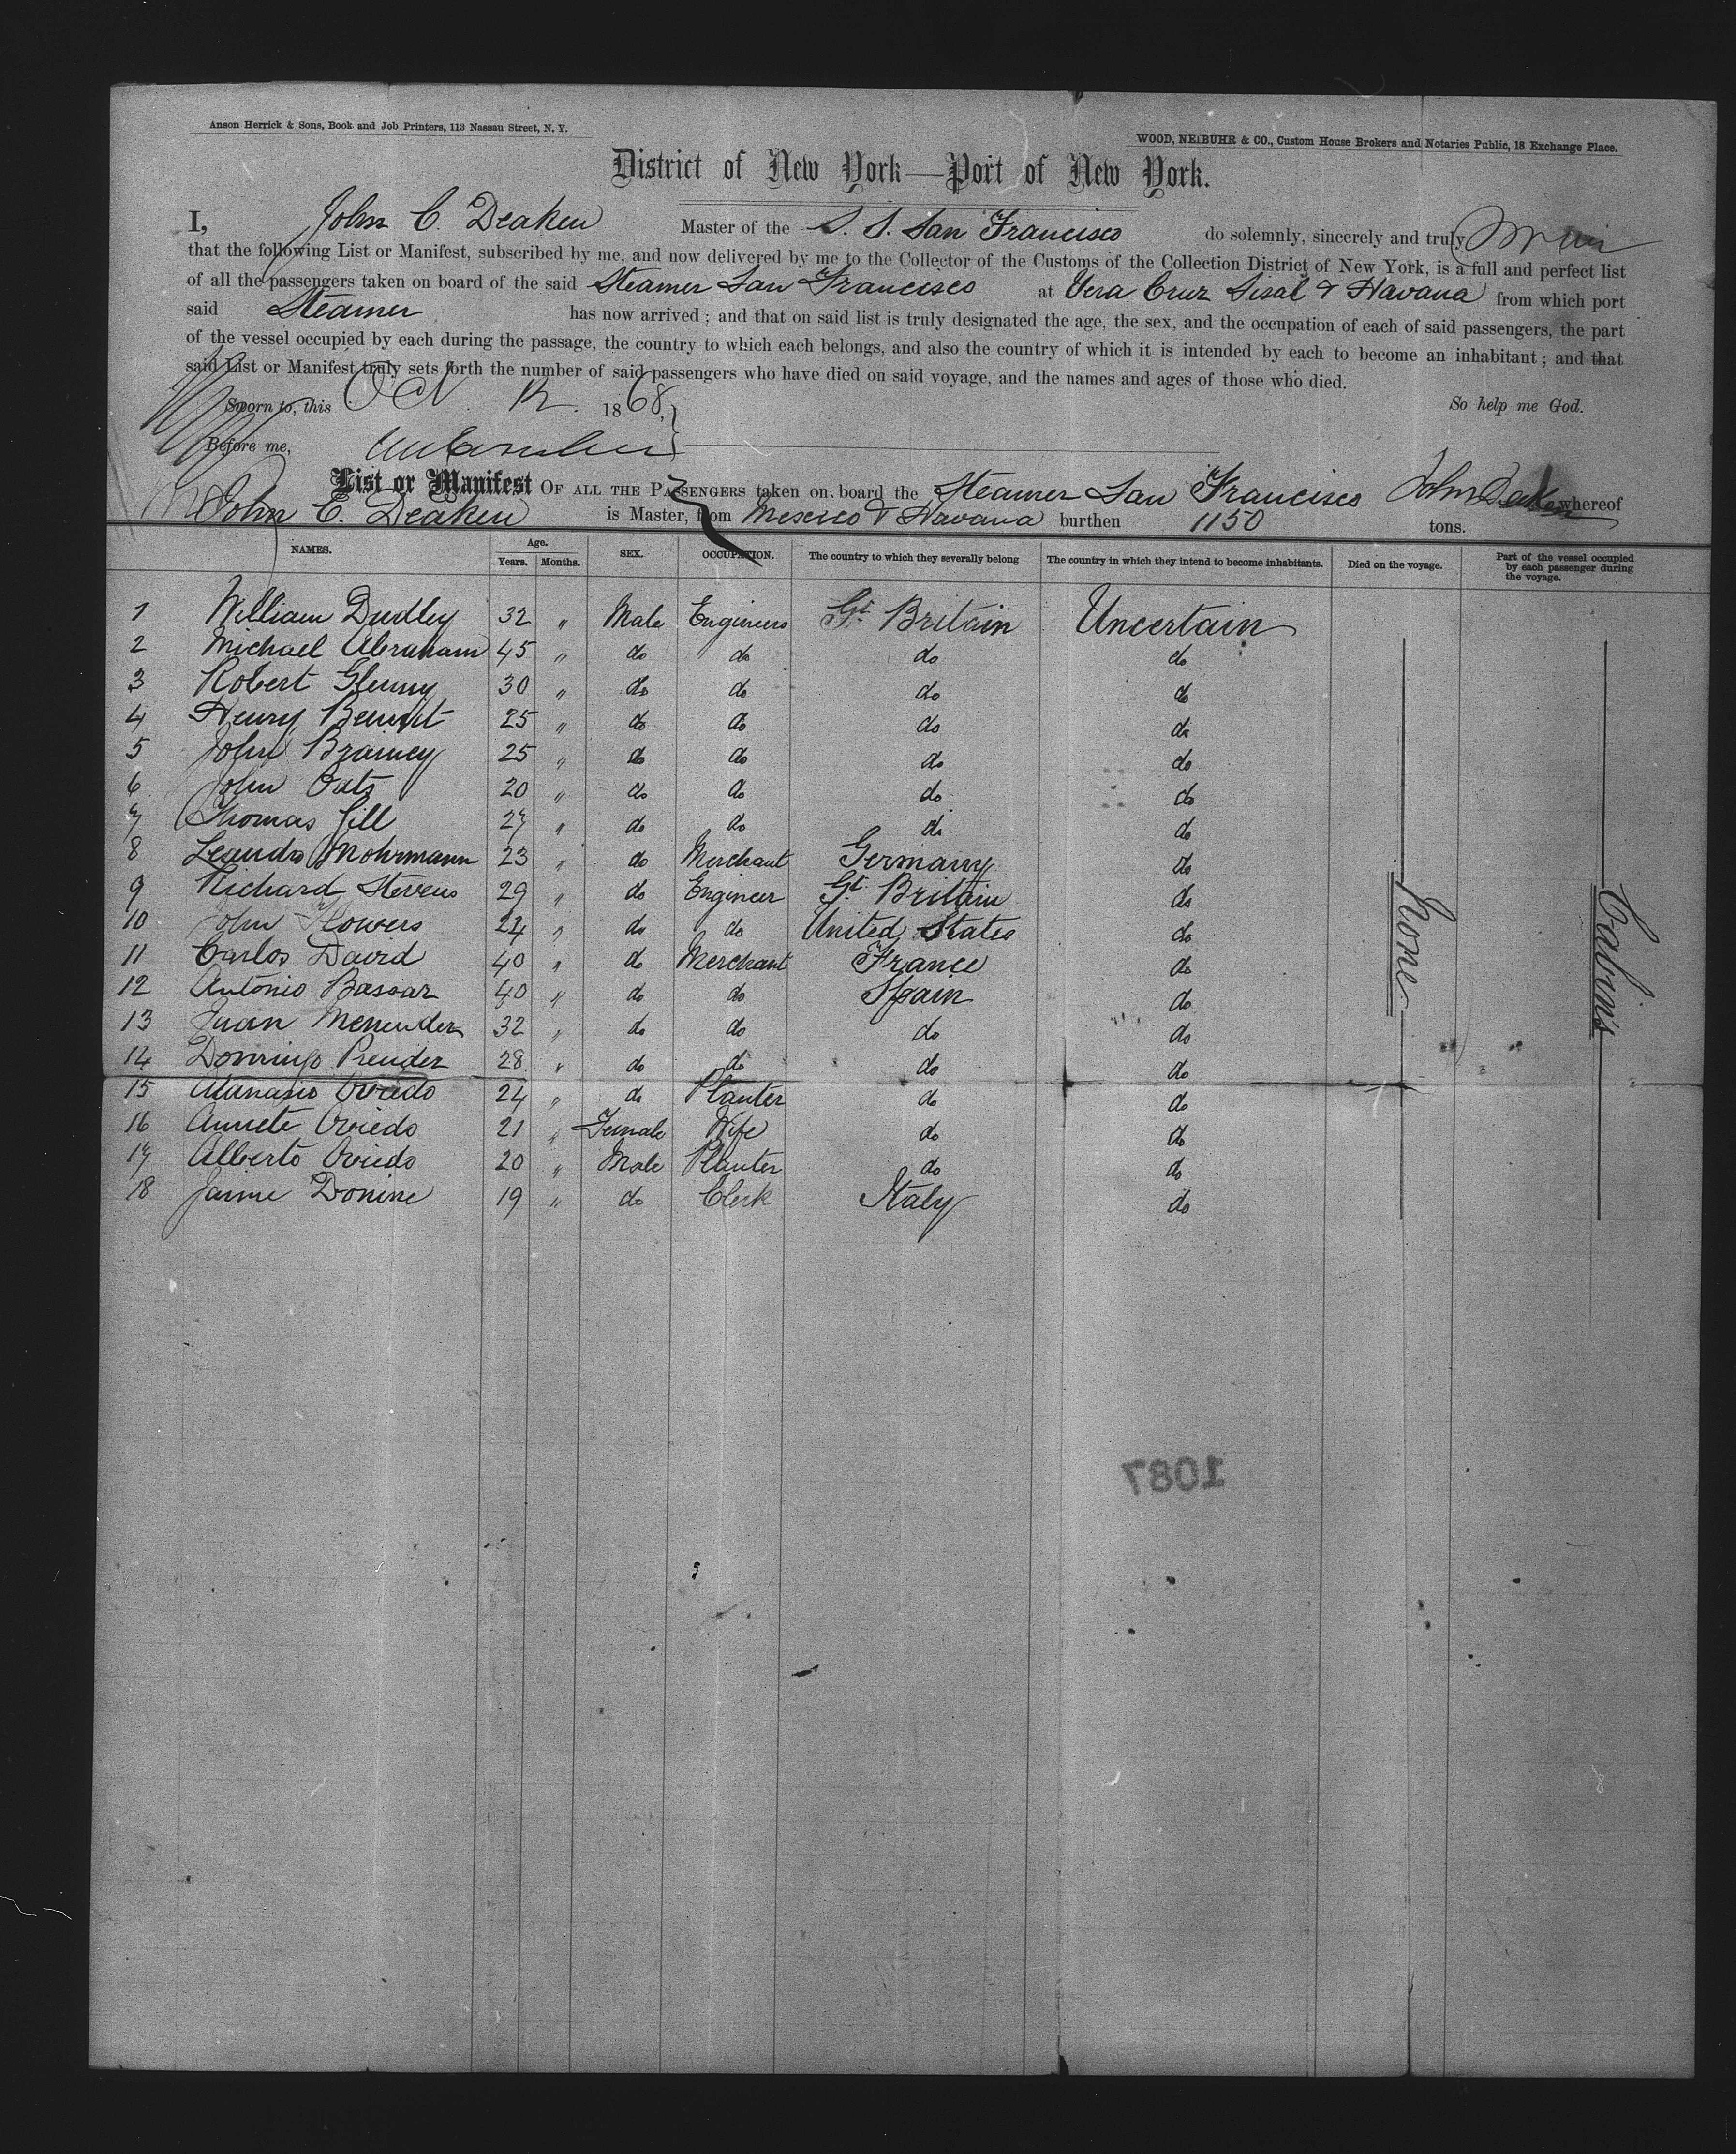 Anson Herrick & Sons, Book and Job Printers, 113 Nassau Street, N. Y.
WOOD, NEIBUHR & CO., Custom House Brokers and Notaries Public, 18 Exchange Place.
District of New York—Port of New York.
I, John C. Deaken Master of the S. S. San Francisco do solemnly, sincerely and truly
that the following List or Manifest, subscribed by me, and now delivered by me to the Collector of the Customs of the Collection District of New York, is a full and perfect list
of all the passengers taken on board of the said Steamer San Francisco at Vera Cruz Sisal & Havana from which port
said Steamer has now arrived ; and that on said list is truly designated the age, the sex, and the occupation of each of said passengers, the part
of the vessel occupied by each during the passage, the country to which each belongs, and also the country of which it is intended by each to become an inhabitant ; and that
said List or Manifest truly sets forth the number of said passengers who have died on said voyage, and the names and ages of those who died.
Sworn to, this Oct 12. 1868, So help me God.
Before me,
List or Manifest OF ALL THE PASSENGERS taken on board the Steamer San Francisco whereof
John C. Deaken is Master, from Mexico & Havana burthen 1150 tons.
NAMES. Age. Years. Months. SEX. OCCUPATION. The country to which they severally belong The country in which they intend to become inhabitants. Died on the voyage. Part of the vessel occupied by each passenger during the voyage.
1 William Dudley 32 " Male Engineers Gt. Britain Uncertain
2 Michael Abraham 45 " do do do do
3 Robert Glenny 30 " do do do do
4 Henry Bennet 25 " do do do do
5 John Brainey 25 " do do do do
6 John Oats 20 " do do do do
7 Thomas Gill 27 " do do do do
8 Leandro Mohrmann 23 " do Merchant Germany do
9 Richard Stevens 29 " do Engineer Gt. Britain do
10 John Flowers 24 " do do United States do
11 Carlos David 40 " do Merchant France do
12 Antonio Bassar 40 " do do Spain do
13 Juan Menendez 32 " do do do do
14 Domingo Prendez 28 " do do do do
15 Atanasio Oviedo 24 " do Planter do do
16 Annete Oviedo 21 " Female Wife do do
17 Alberto Oviedo 20 " Male Planter do do
18 Jaime Donine 19 " do Clerk Italy do
None
Cabins
1087